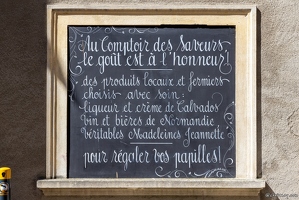 Au Comptoir des Saveurs
le goût est à l'honneur!
des produits locaux et fermiers
choisis avec soin:
liqueur et crème de Calvados
vin et bières de Normandie
véritables Madeleines Jeannette
pour régaler vos papilles!